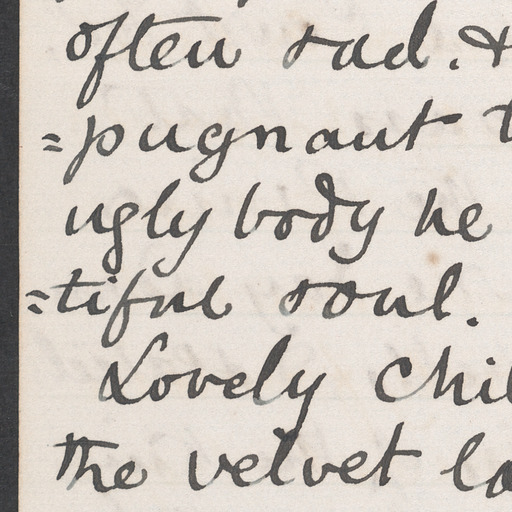 often sad. &
=pugnant t
ugly body he
=tiful soul.
Lovely chil
the velvet la